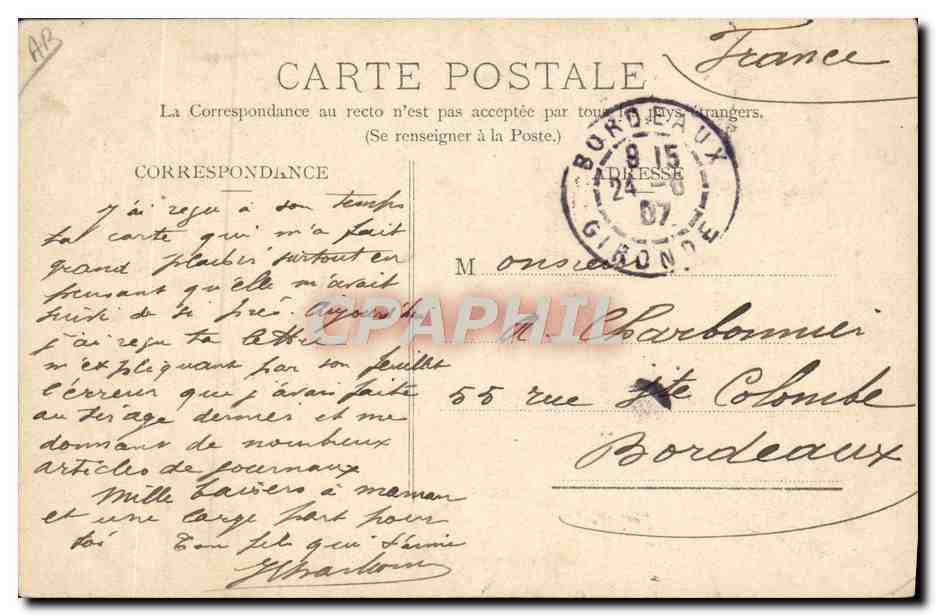 AB
France
CARTE POSTALE
La Correspondance au recto n'est pas acceptée par tous les pays étrangers.
(Se renseigner à la Poste.)
BORDEAUX
9 15
24 - 6
07
GIRONDE
CORRESPONDANCE
ADRESSE
J'ai reçu à son temps
ta carte qui m'a fait
grand plaisir surtout en
pensant qu'elle m'avait
suivi de si près. Aujourd'hui
j'ai reçu ta lettre
m'expliquant par son feuillet
l'erreur que j'avais faite
au dernier et me
donnant de nombreux
articles de journaux
Mille baisers à maman
et une large part pour
toi Ton fils qui t'aime
Monsieur
Charbonnier
55 rue Ste Colombe
Bordeaux
CPAPHIL